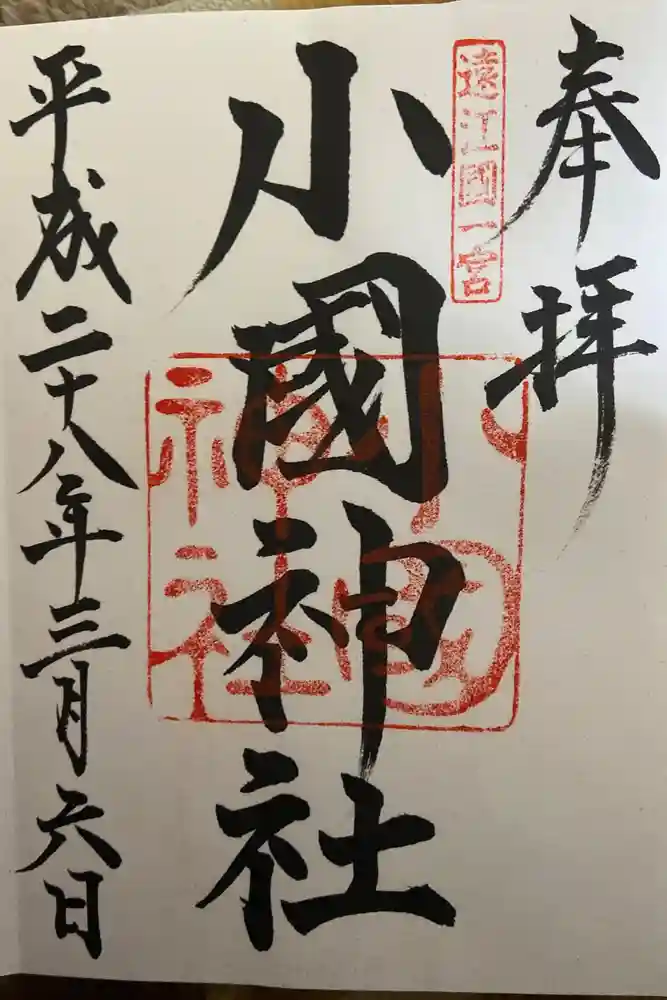 奉拝
遠江國一宮
小國神社
小國神社
平成二十八年三月六日